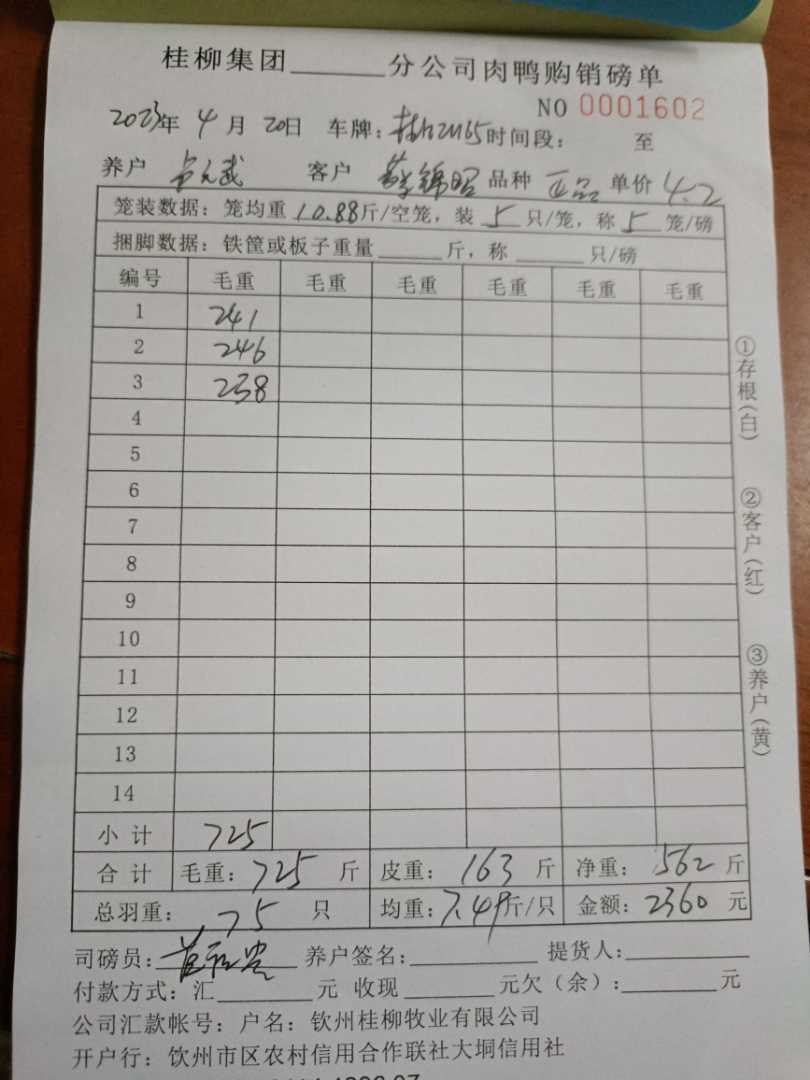 桂柳集团______分公司肉鸭购销磅单
NO 0001602
2023年 4月 20日 车牌: 时间段: 至
养户 客户 锦昭 品种 正品 单价 4.2
笼装数据: 笼均重 10.88斤/空笼, 装 5 只/笼, 称 5 笼/磅
捆脚数据: 铁筐或板子重量______斤, 称______只/磅
编号 毛重 毛重 毛重 毛重 毛重 毛重
1 241
2 246
3 238
4
5
6
7
8
9
10
11
12
13
14
小计 725
合计 毛重: 725 斤 皮重: 163 斤 净重: 562 斤
总羽重: 75 只 均重: 7.49斤/只 金额: 2360 元
司磅员: 养户签名:______ 提货人:______
付款方式: 汇______元 收现______元欠(余):______元
公司汇款帐号: 户名: 钦州桂柳牧业有限公司
开户行: 钦州市区农村信用合作联社大垌信用社
①存根(白)
②客户(红)
③养户(黄)